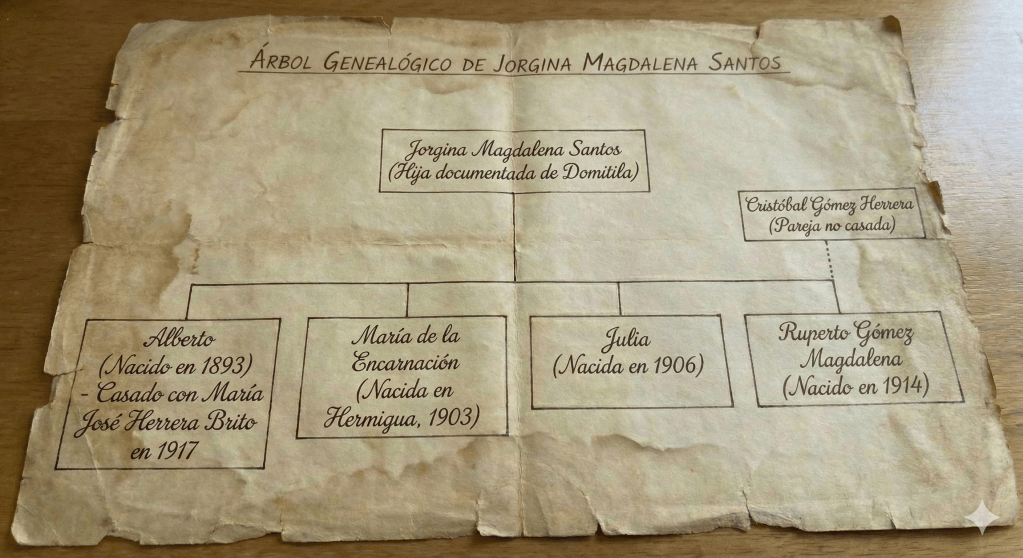 Árbol Genealógico de Jorgina Magdalena Santos
Jorgina Magdalena Santos
(Hija documentada de Domitila)
Cristóbal Gómez Herrera
(Pareja no casada)
Alberto
(Nacido en 1893)
- Casado con María
José Herrera Brito
en 1917
María de la
Encarnación
(Nacida en
Hermigua, 1903)
Julia
(Nacida en 1906)
Ruperto Gómez
Magdalena
(Nacido en 1914)